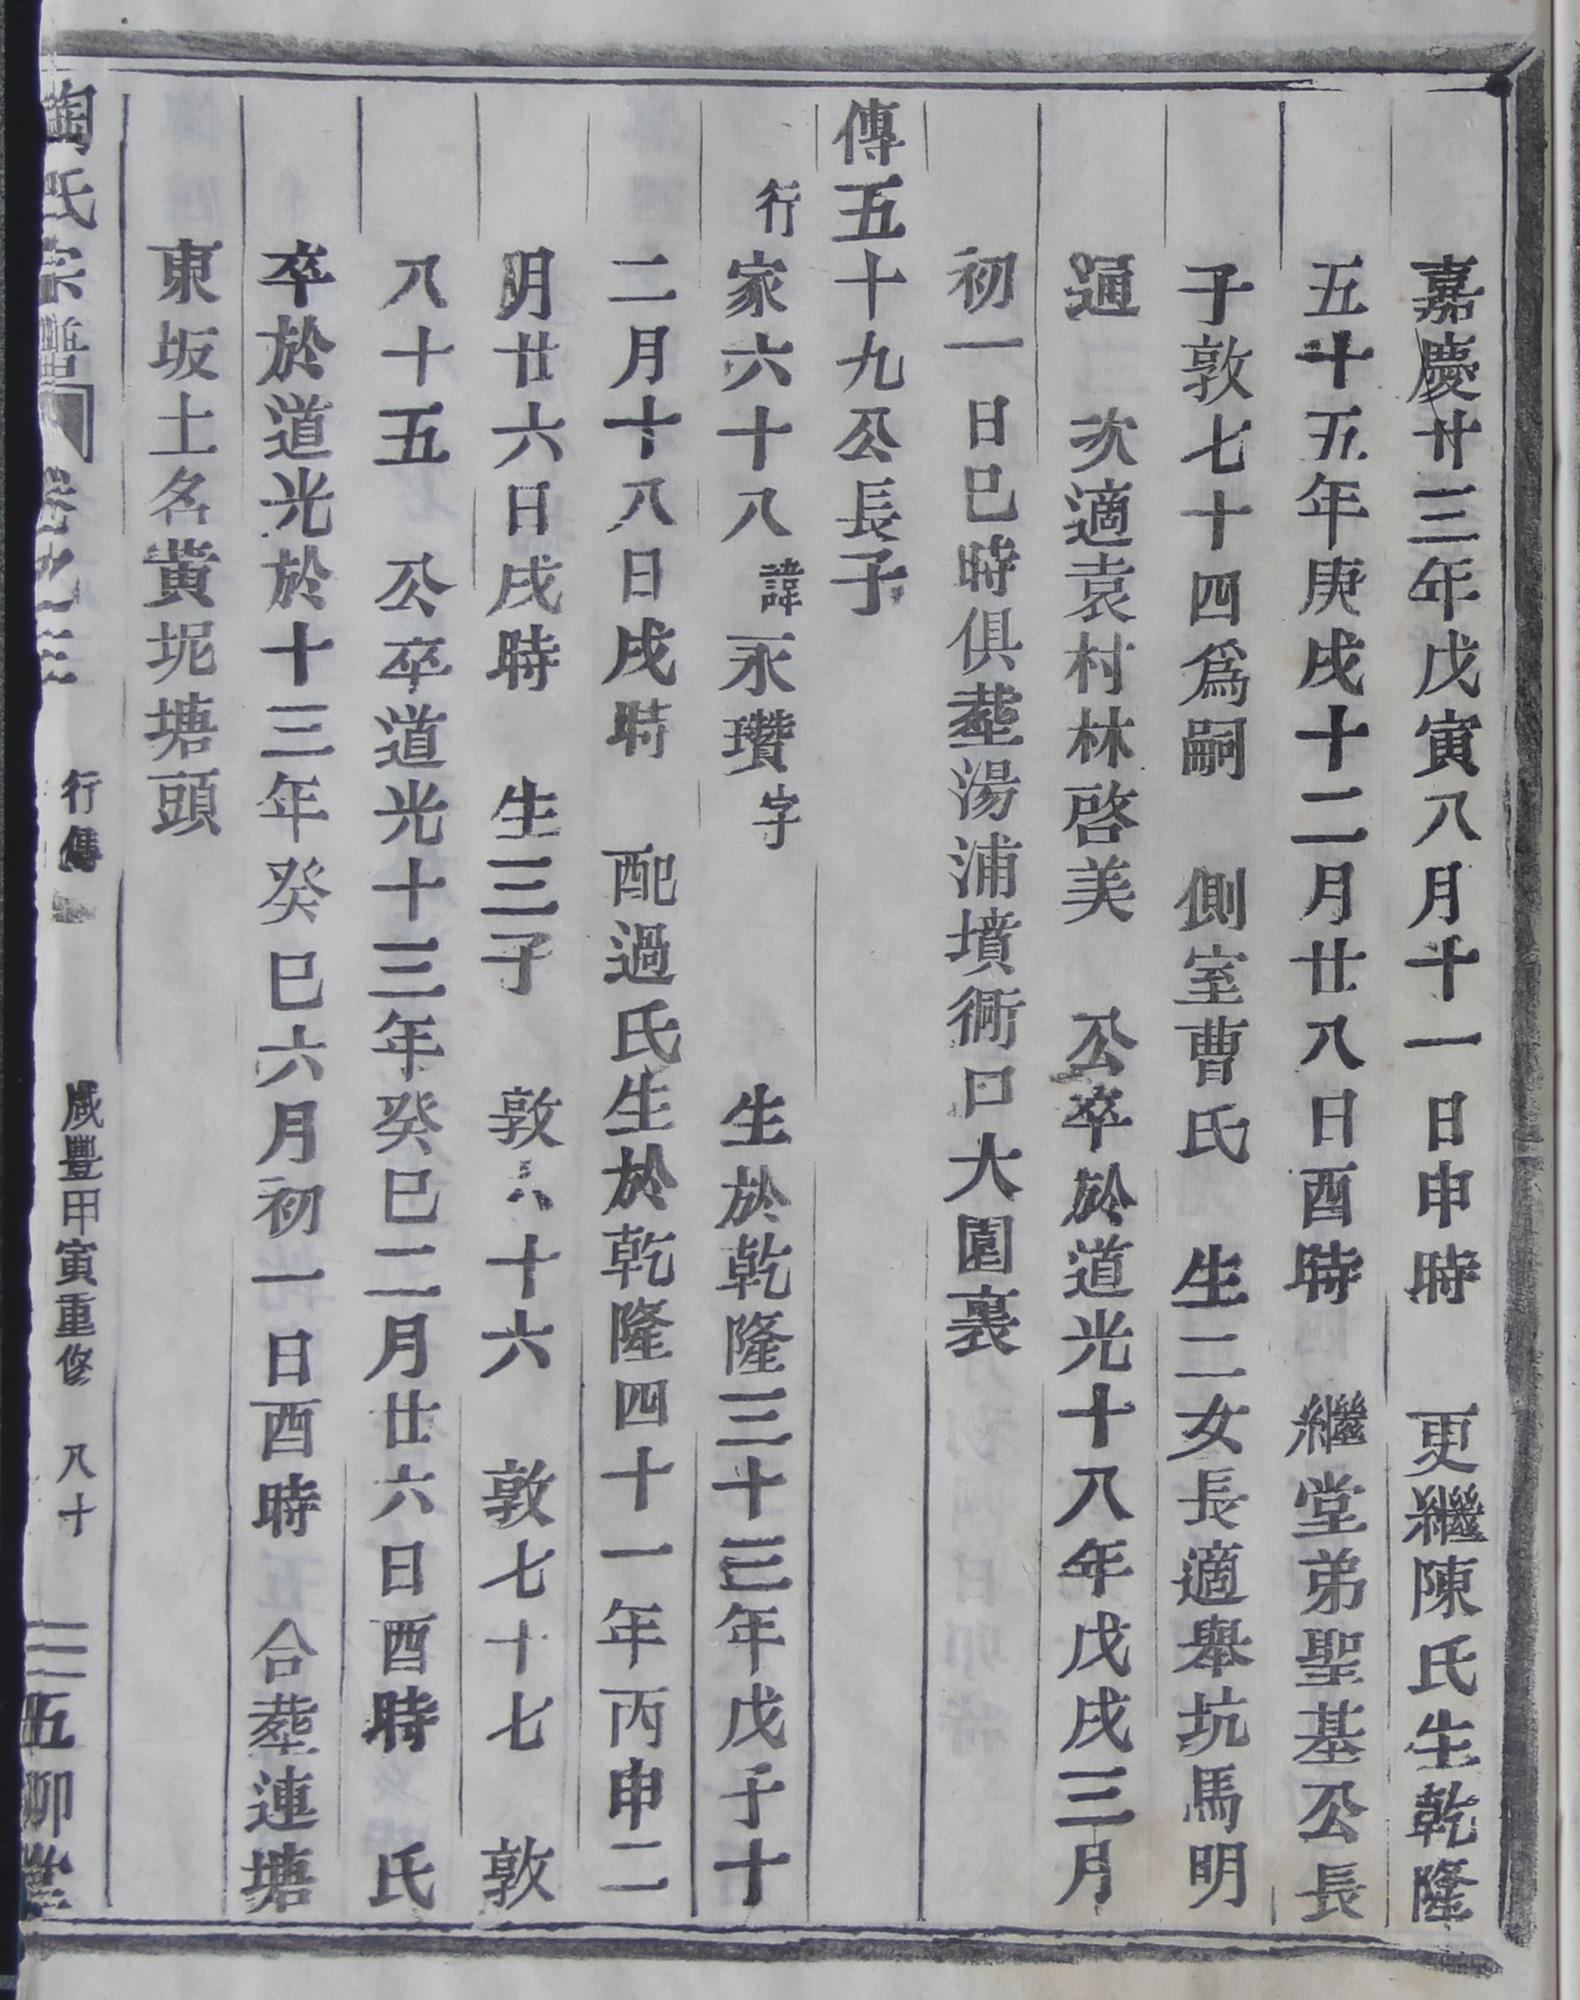 嘉慶廿三年戊寅八月十一日申時　更繼陳氏生乾隆
五十五年庚戌十二月廿八日酉時　繼堂弟聖基公長
子敦七十四爲嗣　側室曹氏　生二女長適舉坑馬明
通　次適袁村林啓美　公卒於道光十八年戊戌三月
初一日巳時俱塟湯浦墳衕口大園裏
傳五十九公長子
行家六十八諱永瓚字　生於乾隆三十三年戊子十
二月十八日戌時　配過氏生於乾隆四十一年丙申二
月廿六日戌時　生三子　敦六十六　敦七十七　敦
八十五　公卒道光十三年癸巳二月廿六日酉時　氏
卒於道光於十三年癸巳六月初一日酉時　合塟連塘
東坂土名黄坭塘頭
陶氏宗譜　卷九　行傳　咸豐甲寅重修　八十　五柳堂